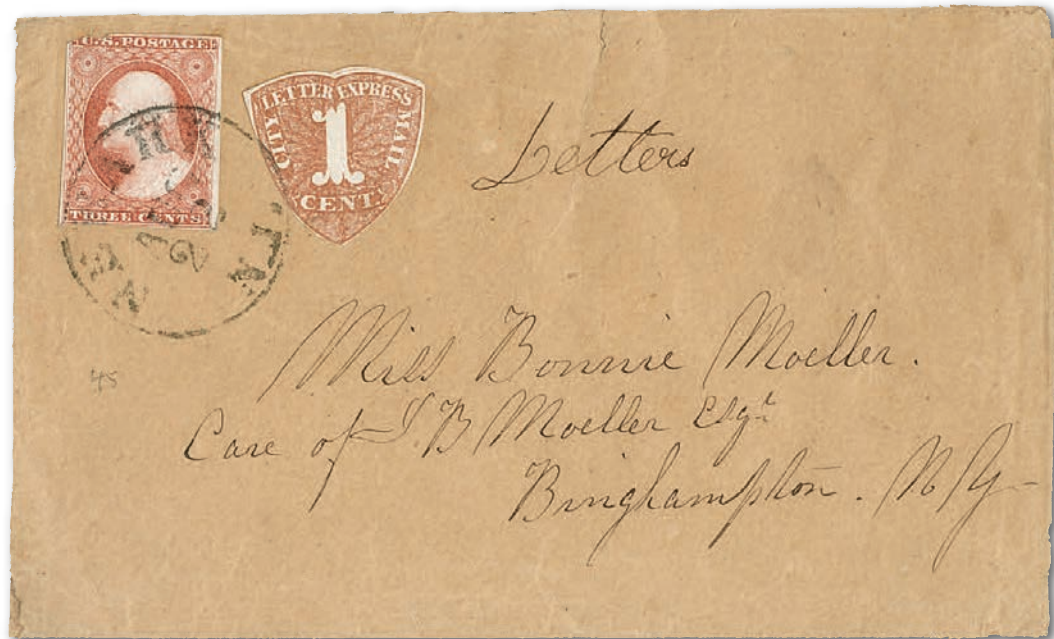 U.S. POSTAGE
THREE CENTS
CITY LETTER EXPRESS MAIL
1
CENT.
Letters
NEWARK
25
Miss Bonnie Moeller.
45
Care of J B Moeller Esqr
Binghampton. N Y